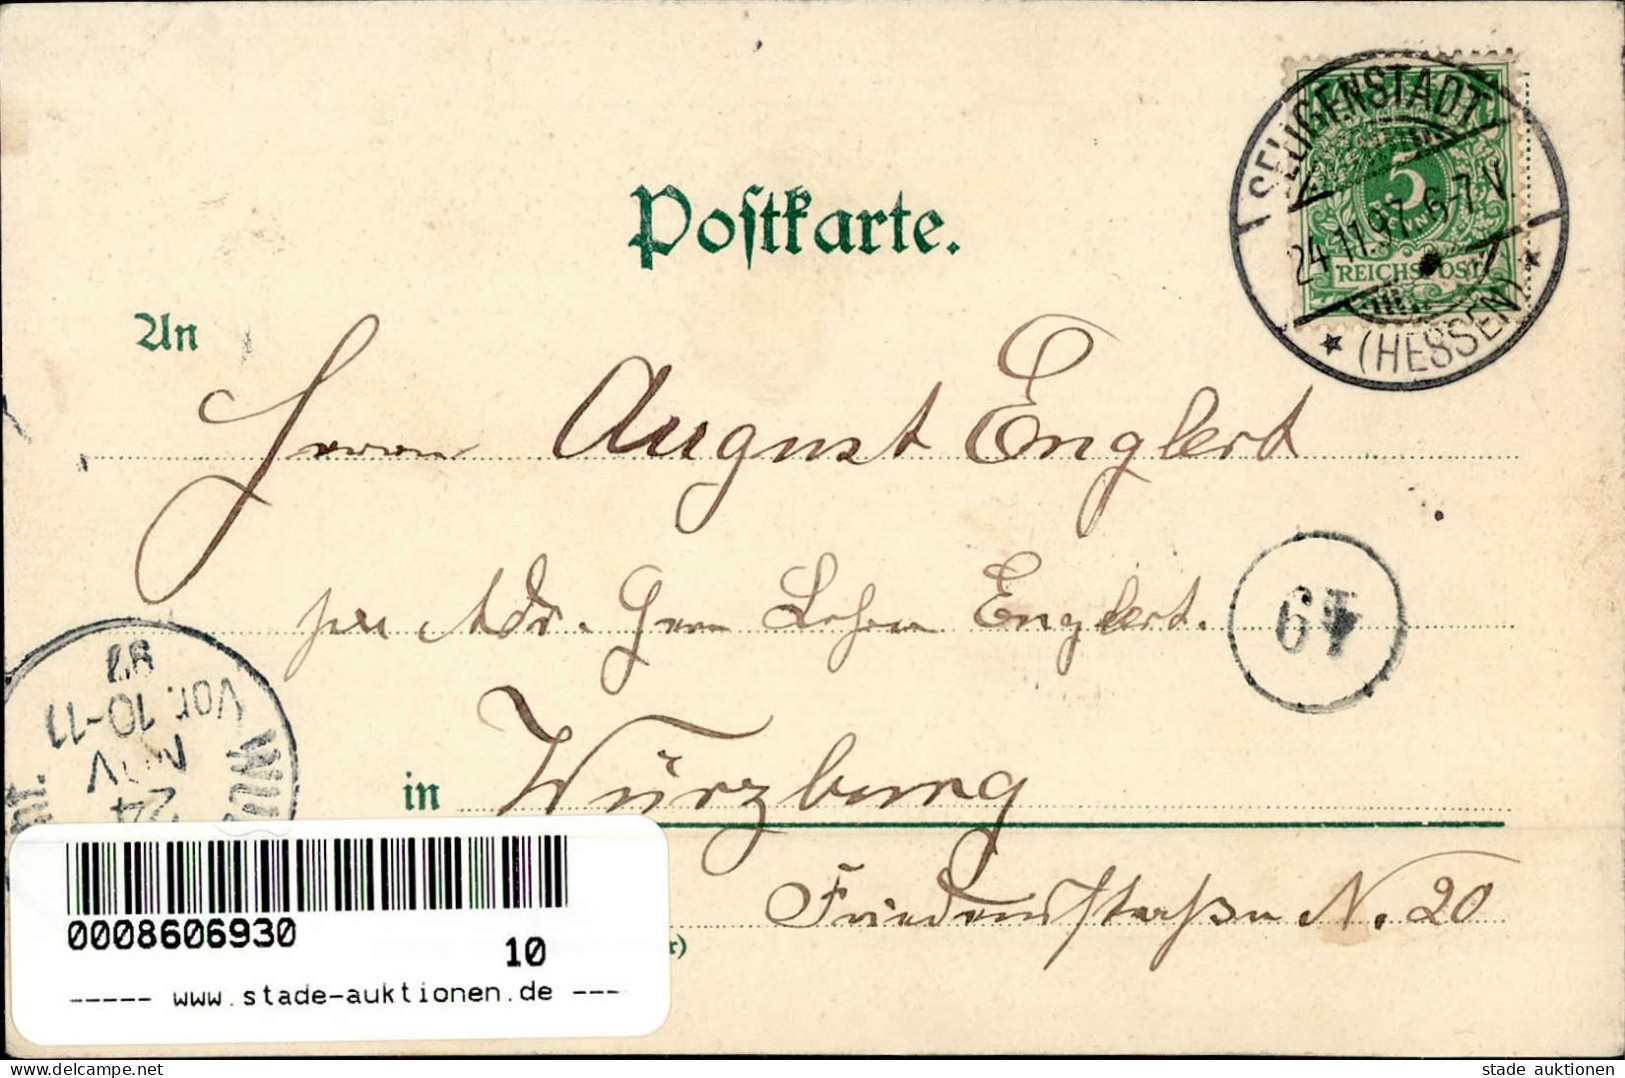 Postkarte.
SELIGENSTADT
24.11.97. 6-7.V.
(HESSEN)
5
REICHSPOST
An
Herrn August Englert
per Adr. Herrn Lehrer Englert.
64
97
Vor. 10-11
NOV
24
in Würzburg
Friedenstraße N. 20
0008606930
10
www.stade-auktionen.de
stade auktionen